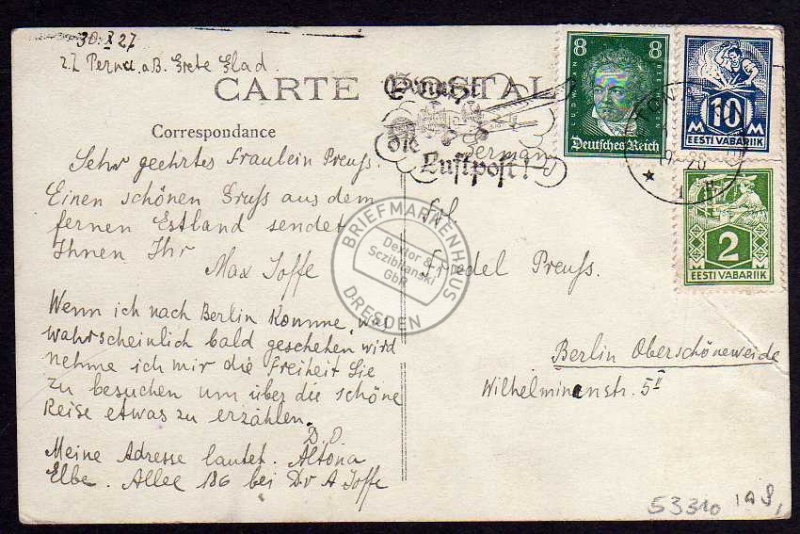 30.X.27
z.Z Pernau a.B. Grete Glad.
CARTE POSTALE
Correspondance
Sehr geehrtes Fräulein Preuss.
Einen schönen Gruss aus dem
fernen Estland sendet
Ihnen Ihr
Max Joffe
Wenn ich nach Berlin komme, was
wahrscheinlich bald geschehen wird
nehme ich mir die Freiheit Sie
zu besuchen um über die schöne
Reise etwas zu erzählen.
D.O
Meine Adresse lautet. Altona
Elbe. Allee 186 bei Dr A Joffe
Benutzt
die
Luftpost!
Germany
8 8
Deutsches Reich
10
M M
EESTI VABARIIK
2
EESTI VABARIIK
BRIEFMARKENHAUS
Dextor &
Sczibilanski
GbR
DRESDEN
Frl.
Friedel Preuss.
Berlin Oberschöneweide
Wilhelminenstr. 5 II
53310